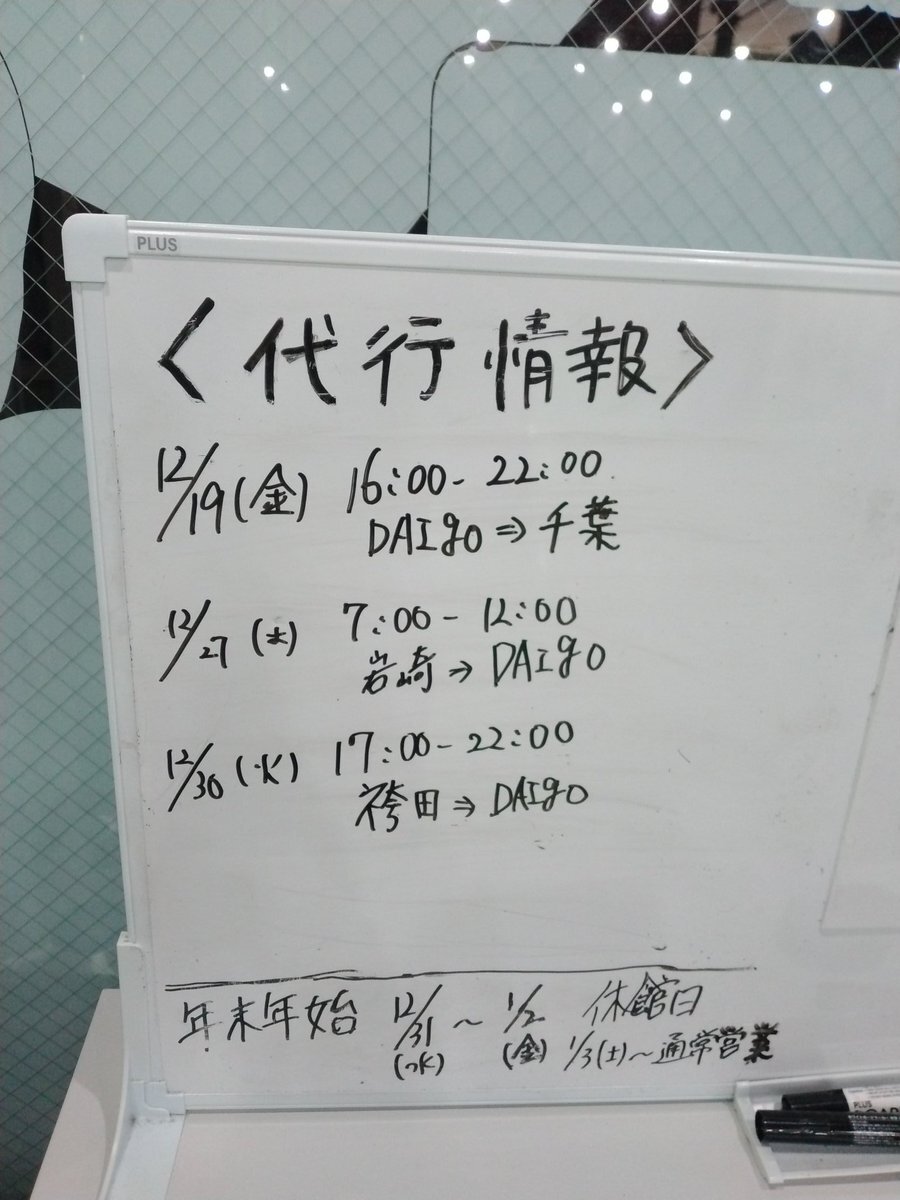 PLUS
〈代行情報〉
12/19(金) 16:00-22:00
DAIgo⇒千葉
12/27(土) 7:00-12:00
岩崎⇒DAIgo
12/30(火) 17:00-22:00
袴田⇒DAIgo
年末年始 12/31(水)～1/2(金) 休館日
1/3(土)～通常営業
PLUS